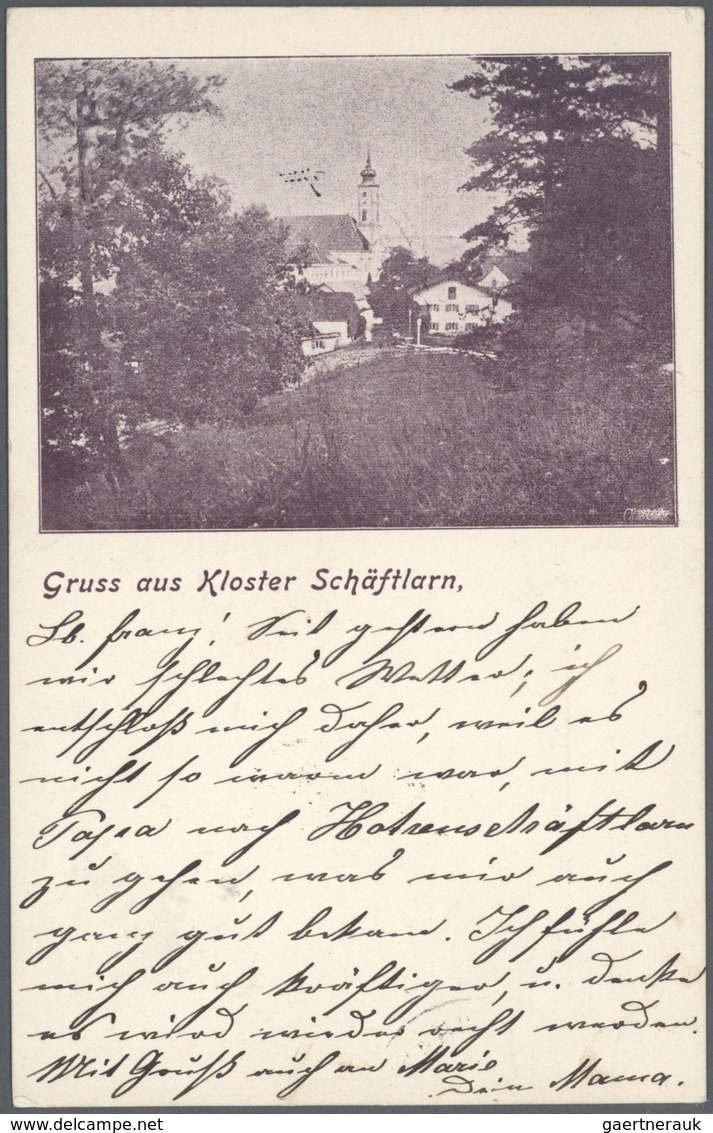 Gruss aus Kloster Schäftlarn,
Lb. Franz! Seit gestern haben
wir schlechtes Wetter; ich
entschloß mich daher, weil es
nicht so warm war, mit
Papa nach Hohenschäftlarn
zu gehen, was mir auch
ganz gut bekam. Ich fühle
mich auch kräftiger, u. denke
es wird wieder recht werden.
Mit Gruß auch an Marie
Dein Mama.
gaertnerauk